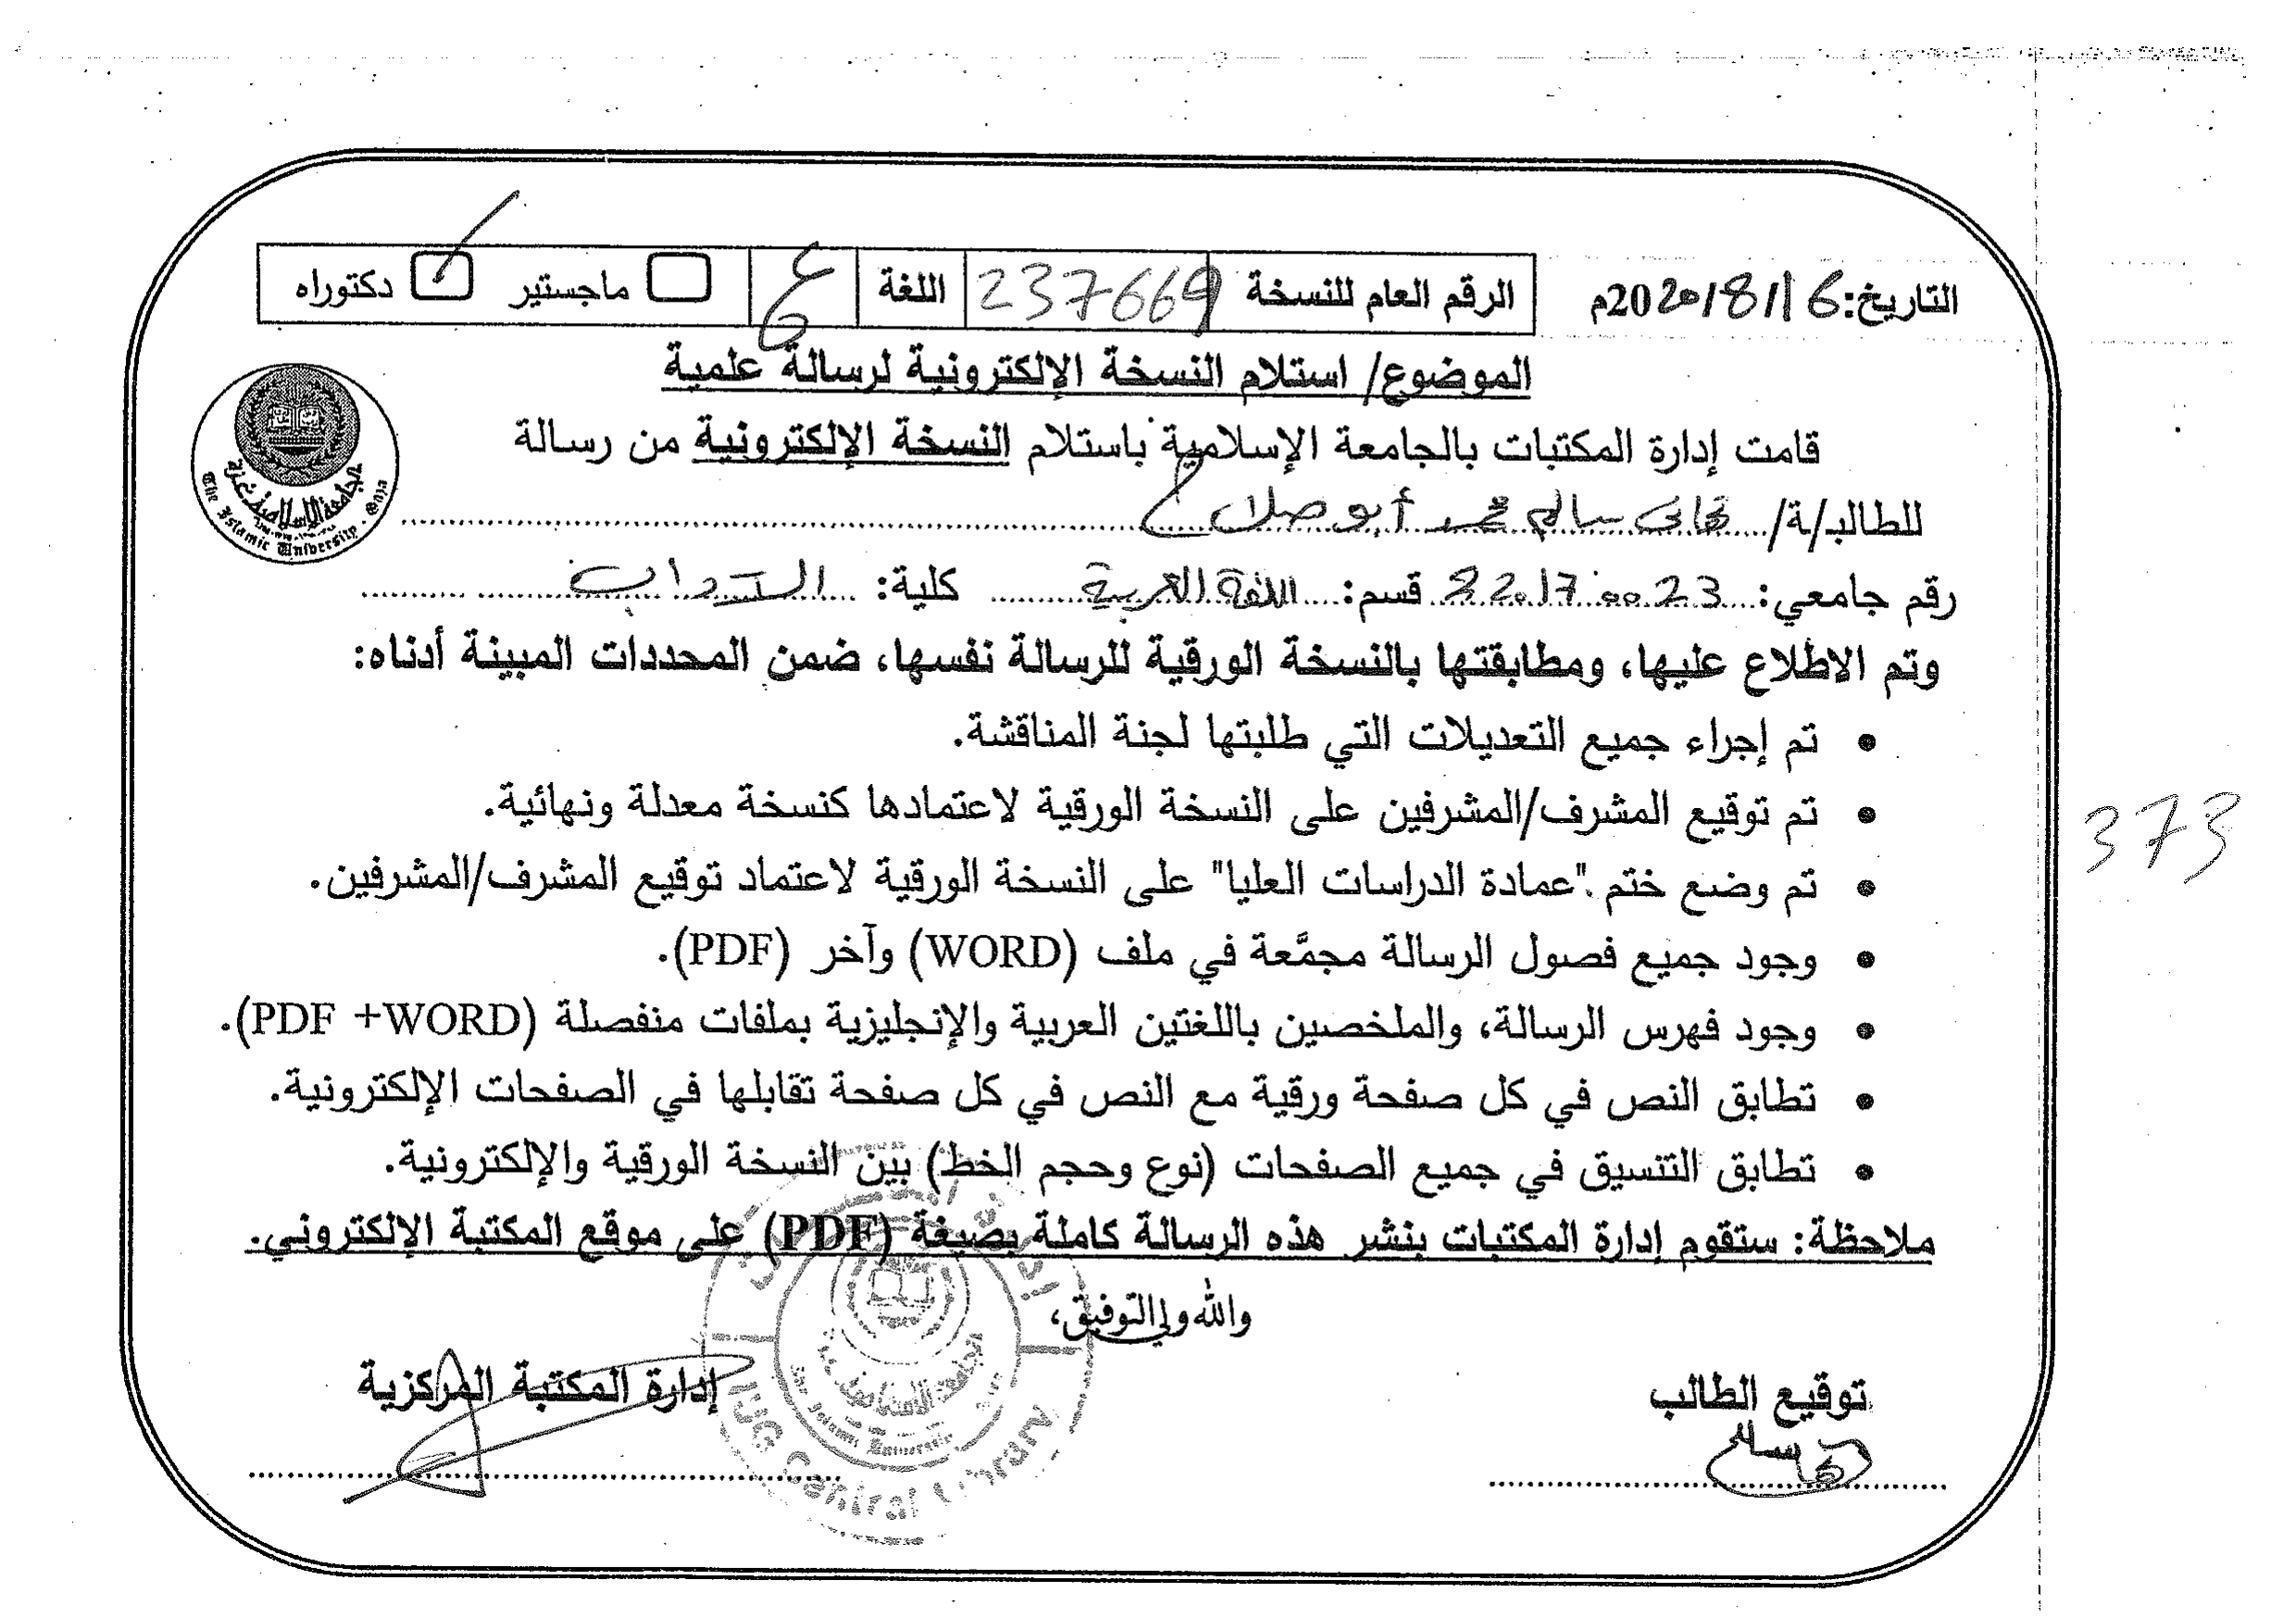 التاريخ: 16/8/2020م
الرقم العام للنسخة 237669 اللغة ع ماجستير دكتوراه
الموضوع/ استلام النسخة الإلكترونية لرسالة علمية
قامت إدارة المكتبات بالجامعة الإسلامية باستلام النسخة الإلكترونية من رسالة
للطالب/ة/ تهاني سالم محمد أبو صلاح
رقم جامعي: 220170023 قسم: اللغة العربية كلية: الآداب
وتم الاطلاع عليها، ومطابقتها بالنسخة الورقية للرسالة نفسها، ضمن المحددات المبينة أدناه:
• تم إجراء جميع التعديلات التي طلبتها لجنة المناقشة.
• تم توقيع المشرف/المشرفين على النسخة الورقية لاعتمادها كنسخة معدلة ونهائية.
373
• تم وضع ختم "عمادة الدراسات العليا" على النسخة الورقية لاعتماد توقيع المشرف/المشرفين.
• وجود جميع فصول الرسالة مجمَّعة في ملف (WORD) وآخر (PDF).
• وجود فهرس الرسالة، والملخصين باللغتين العربية والإنجليزية بملفات منفصلة (PDF +WORD).
• تطابق النص في كل صفحة ورقية مع النص في كل صفحة تقابلها في الصفحات الإلكترونية.
• تطابق التنسيق في جميع الصفحات (نوع وحجم الخط) بين النسخة الورقية والإلكترونية.
ملاحظة: ستقوم إدارة المكتبات بنشر هذه الرسالة كاملة بصيغة (PDF) على موقع المكتبة الإلكتروني.
والله ولي التوفيق،
توقيع الطالب
إدارة المكتبة المركزية
الجامعة الإسلامية غزة
The Islamic University . Gaza
IUG Central Library